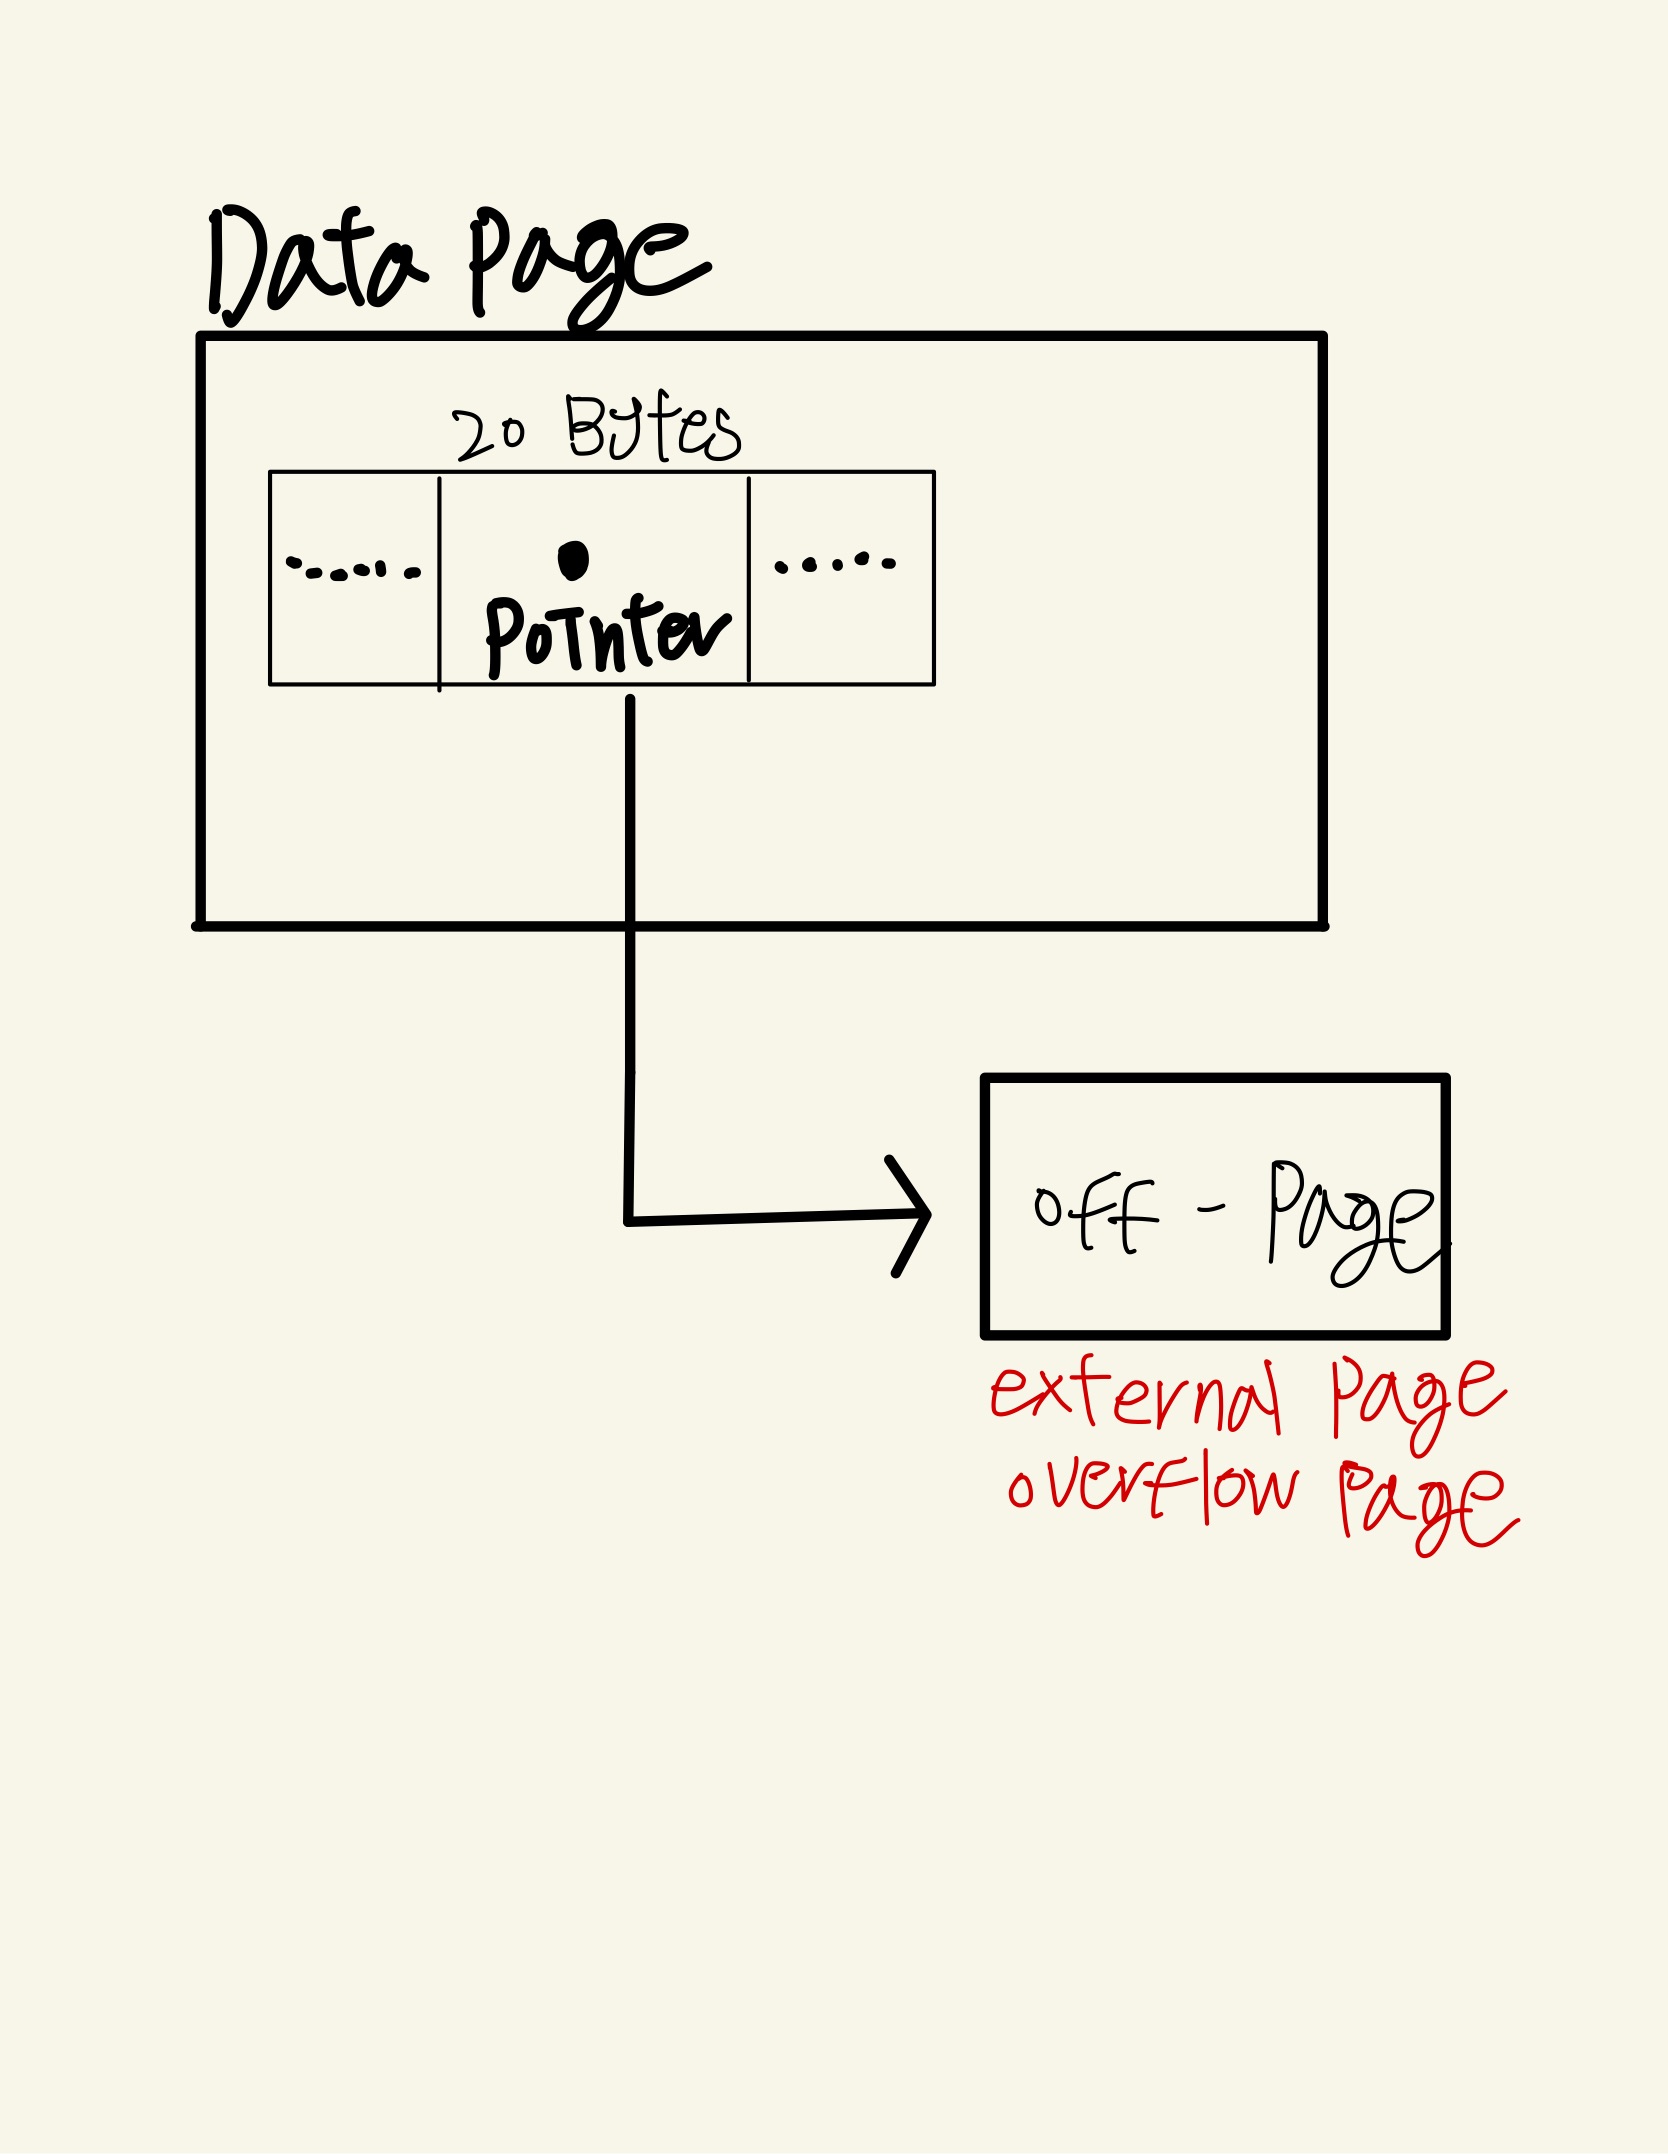 Data Page
20 Bytes
Pointer
off - Page
external Page
overflow Page